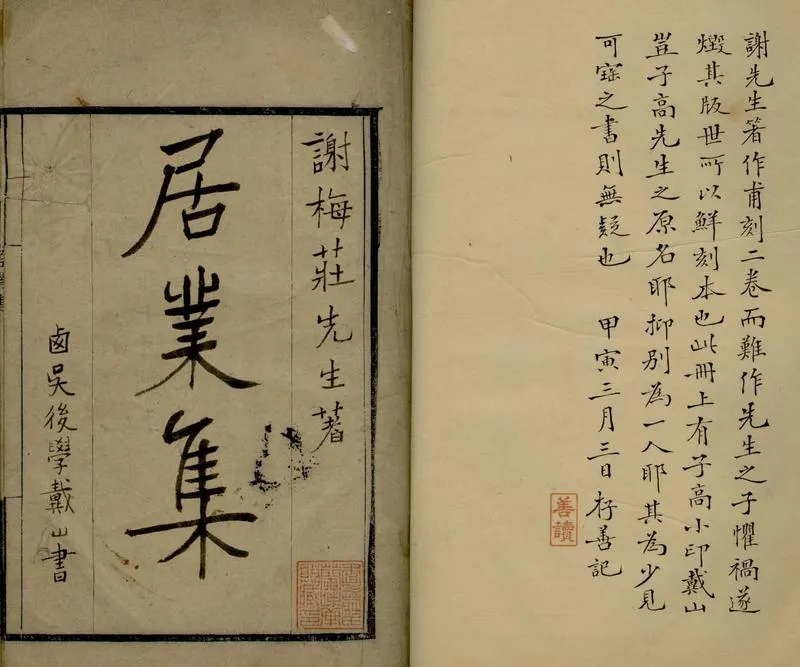 謝先生箸作甫刻二卷而難作先生之子懼禍遂
燬其版世所以鮮刻本也此冊上有子高小印戴山
豈子高先生之原名耶抑別為一人耶其為少見
可寶之書則無疑也 甲寅三月三日存善記
善讀
謝梅莊先生著
居業集
卥吳後學戴山書